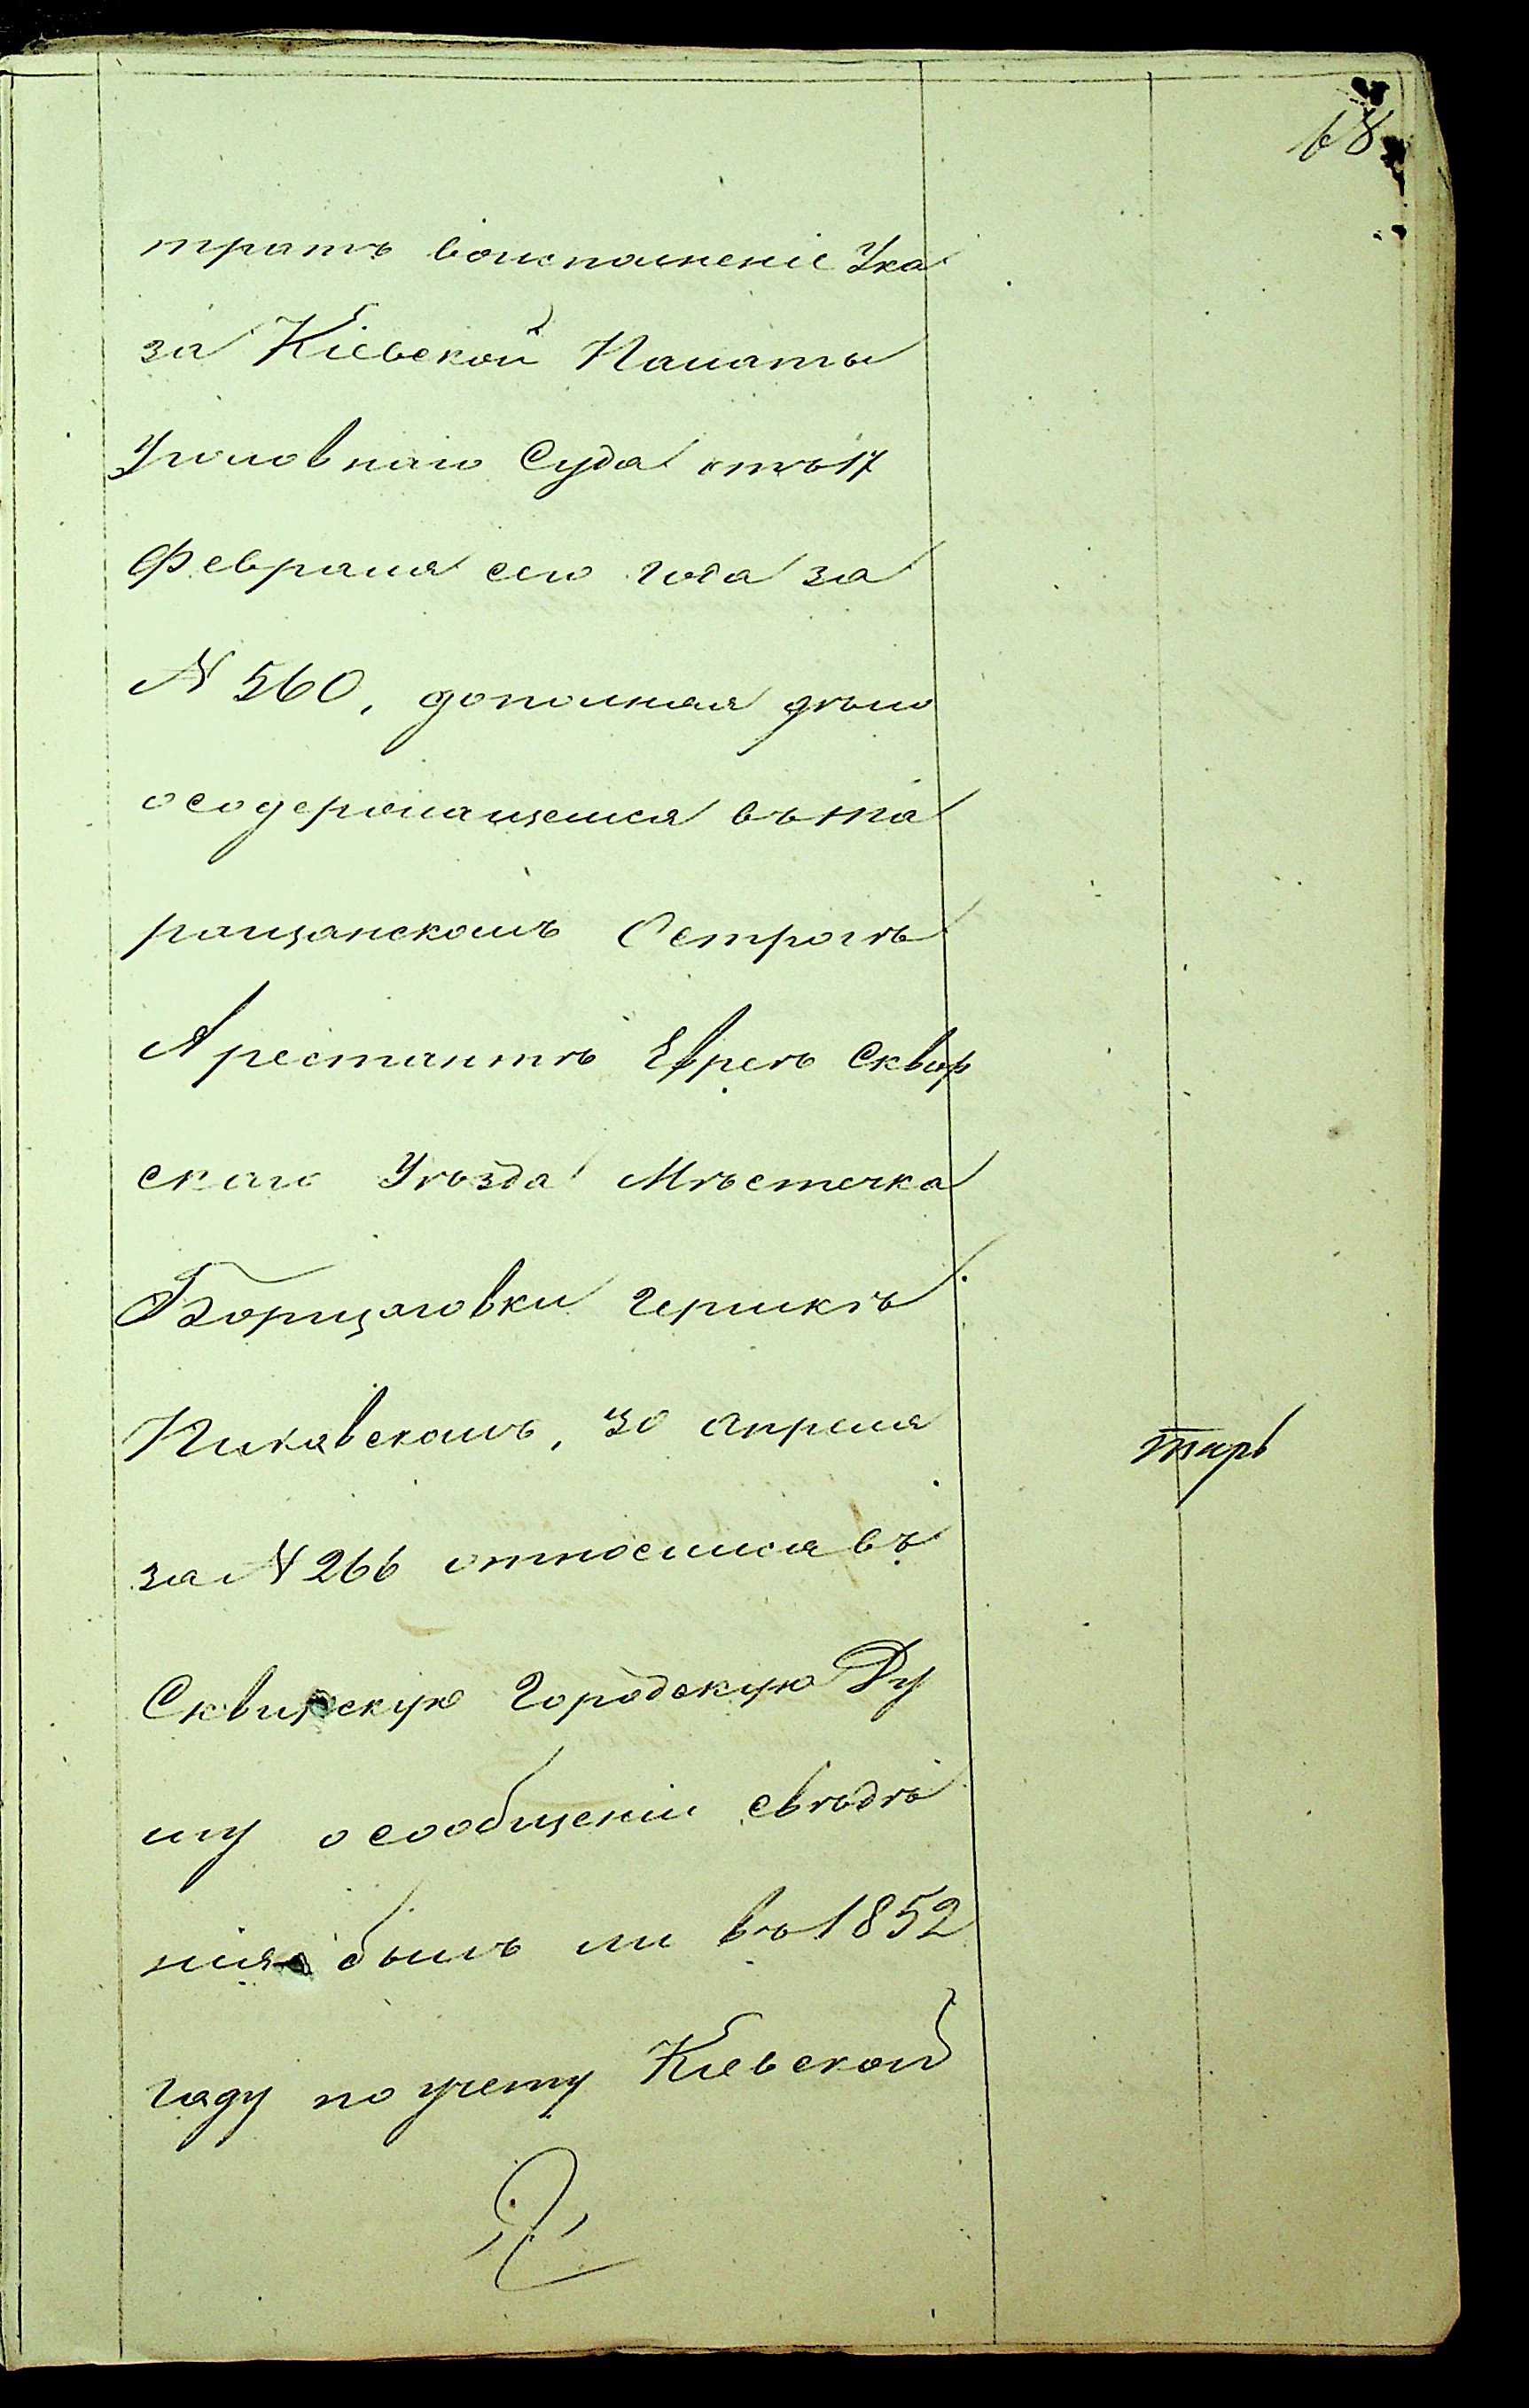 68
тратъ воисполненіе Ука
за Кіевской Палаты
Уголовнаго Суда отъ 17
Февраля сего года за
N 560, дополняя дѣло
осодержащемся въ Та
ращанскомъ Острогѣ
Арестантѣ Евреѣ Сквир
скаго Уѣзда Мѣстечка
Борщаговки Гершкѣ
Пикавскомъ, 30 Апреля
за N 266 относился въ
Сквирскую Городскую Ду
му осообщеніи свѣдѣ
нія былъ ли въ 1852
году по учету Кіевской